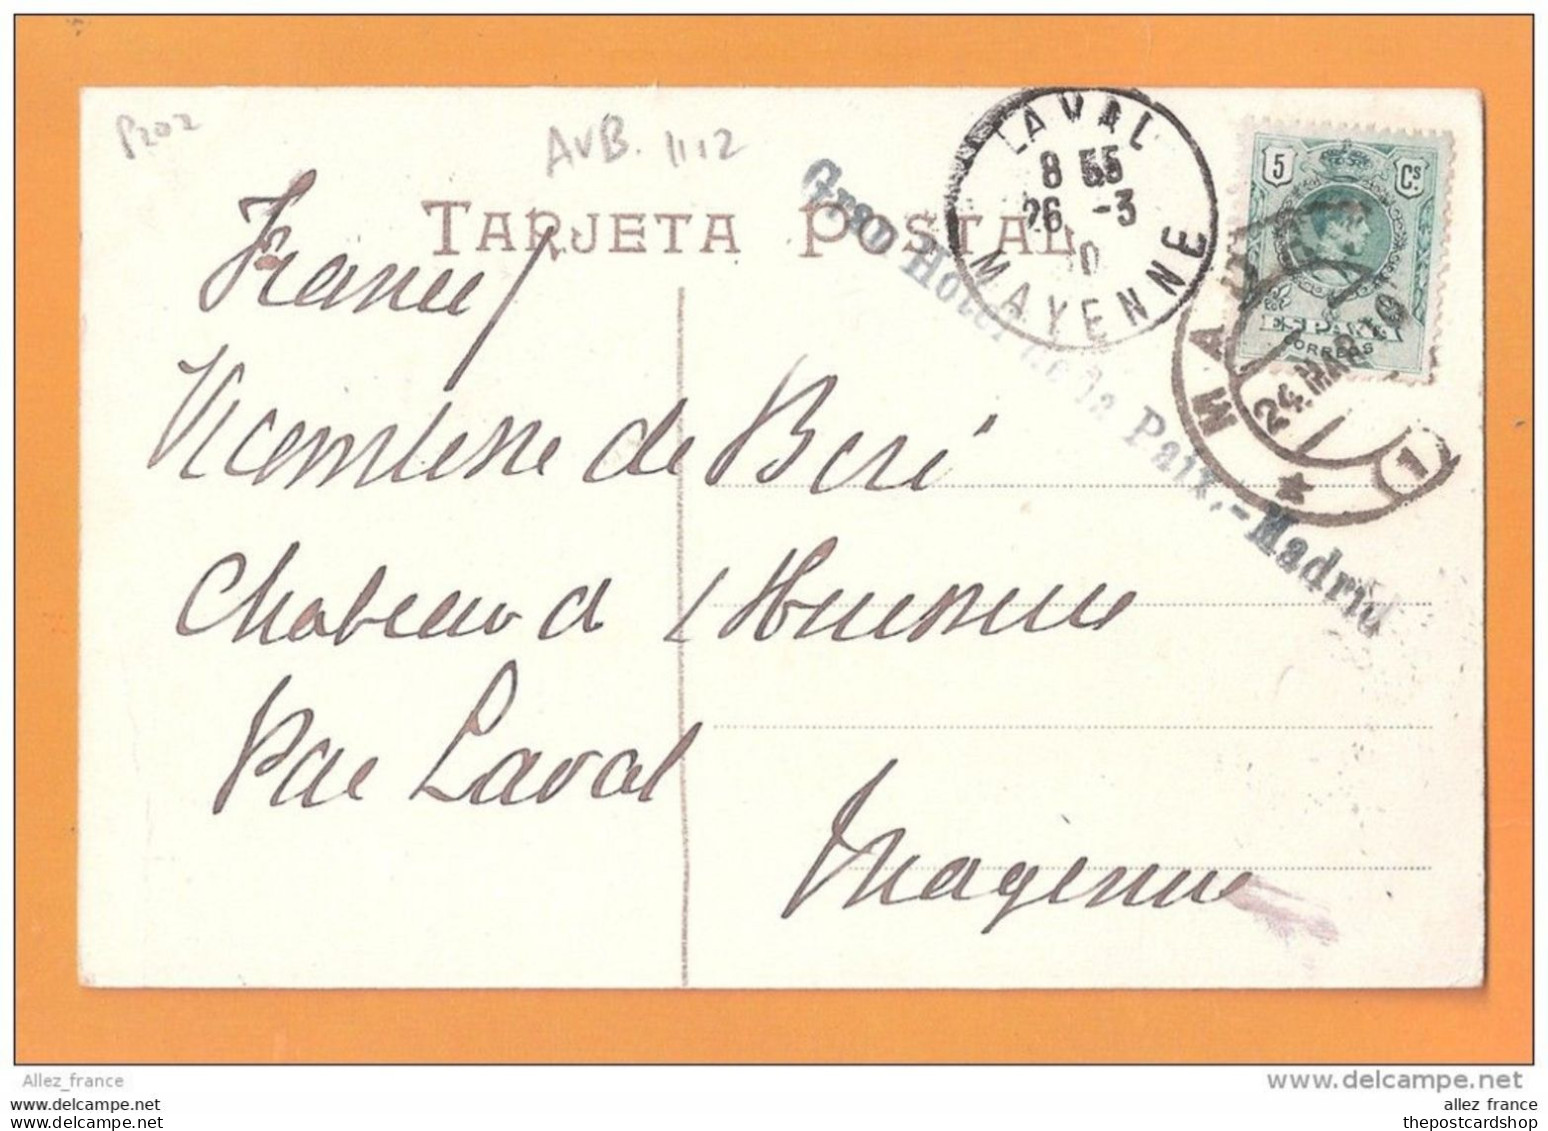 P202
AVB. 1112
LAVAL
8 55
26 -3
10
MAYENNE
5 Cs
ESPAÑA
CORREOS
MADRID
24.MAR.10
1
TARJETA POSTAL
Gran Hotel de la Paix.-Madrid
France/
Vicomtesse de
Chateau d
Par Laval
Mayenne
Allez_france
delcampe.net
allez_france
thepostcardshop